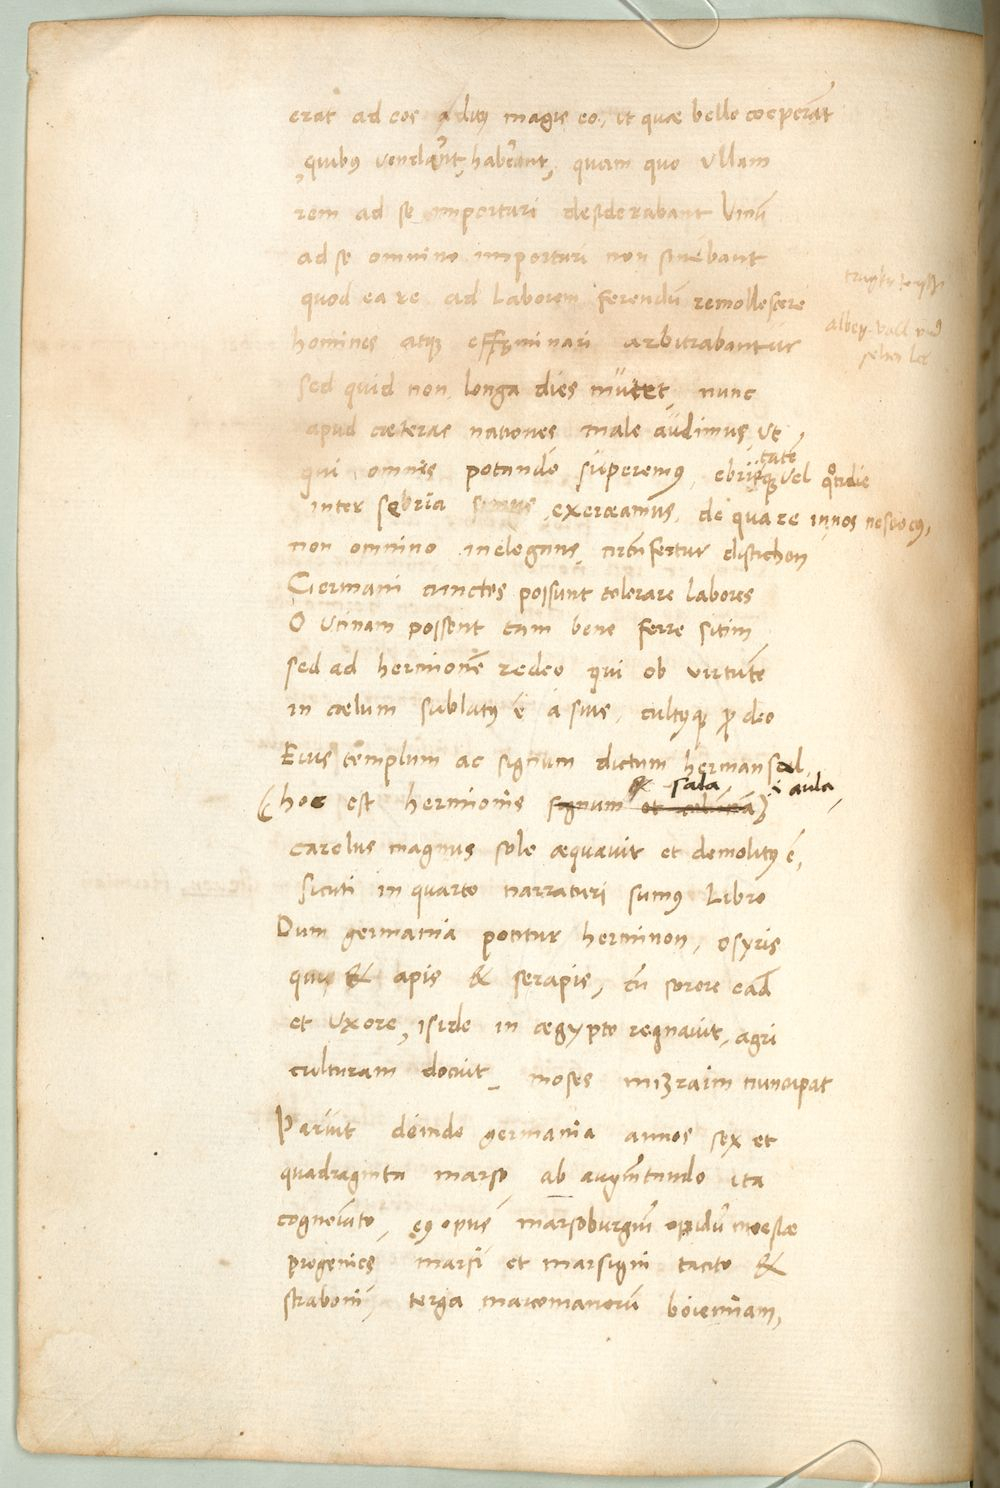 erat ad eos aditꝰ magis eo, ut quæ bello coeperāt
quibus venderēt, haberent, quam quo ullam
rem ad se importari desiderabant Vinū
ad se omnino importari non sinebant
quod ea re ad laborem ferendū remollescere
homines atque effęminari arbitrabantur
sed quid non longa dies mutet, nunc
apud cæteras nationes male audimus, ut
qui omnes potando superemus, ebrietatēque vel quotidie
inter sobria exerceamus, de qua re in nos nescio cuiꝰ,
non omnino inelegans circūfertur distichon
Germani cunctos possunt tolerare labores
O Utinam possent tam bene ferre sitim
sed ad hermionē redeo qui ob virtutē
in cælum sublatꝰ ē a suis, cultusque ꝓ deo
Eius templum ac signum dictum hermansal
sala, i aula,
(hoc est hermionis
carolus magnus solo æquavit et demolitꝰ ē,
sicuti in quarto narraturi sumꝰ Libro
Dum germania potitur herminon, osyris
qui & apis & serapis, cū sorore eadē
et Uxore, iside in ægypto regnavit, agri
culturam docuit moses mizraim nuncupat
Paruit deinde germania annos sex et
quadraginta marso, ab augmentando ita
cognoīato, eiꝰ opus marsoburgiū opidū moesiæ
progenies marsi et marsigni tacito &
straboni, terga marcomanorū boiemiam,